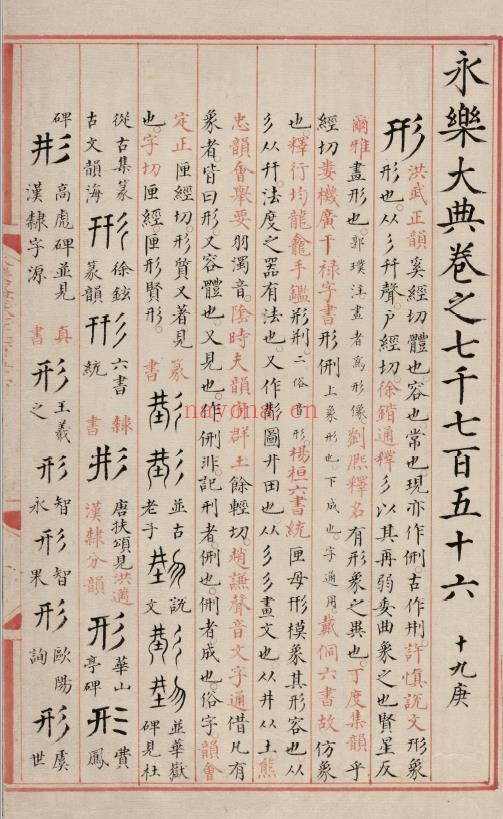 永樂大典卷之七千七百五十六 十九庚
形 洪武正韻奚經切體也容也常也現亦作侀古作𠛬許慎說文形象
形也。从彡幵聲。戶經切。徐鍇通釋彡以其再弱委曲象之也賢星反
爾雅畫形也。郭璞注畫者為形像。劉熙釋名有形象之異也。丁度集韻乎
經切婁機廣干祿字書形侀上象形也。下成也。字通用。戴侗六書故仿象
也。釋行均龍龕手鑑形𠛬二俗音形。楊桓六書統匣母形模象其形容也从
彡从幵。法度之器有法也。又作𢒈圖井田也从彡彡畫文也从井从土熊
忠韻會舉要羽濁音。陰時夫韻府群玉餘輕切。趙謙聲音文字通借凡有
象者皆曰形。又容體也。又見也。作侀非。記刑者侀也。侀者成也。俗字。韻會
定正匣經切。形質又著見
也。字切匣經。匣形賢形。
篆書 並古老子 說文 並華嶽碑 見杜
從古集篆古文韻海 徐鉉篆韻 六書統 隸書 唐扶頌見洪邁漢隸分韻 形 華山亭碑 費鳳
碑 高虎碑並見漢隸字源 真書 形 王羲之 形 智永 形 智果 形 歐陽詢 形 虞世